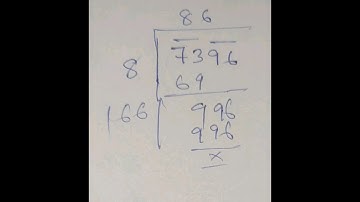 86
8 7396
69
166 996
996
x